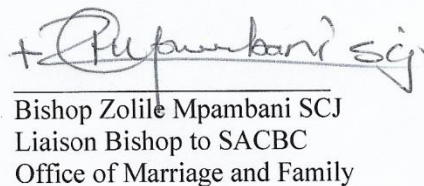 + ZMpambani scj
Bishop Zolile Mpambani SCJ
Liaison Bishop to SACBC
Office of Marriage and Family